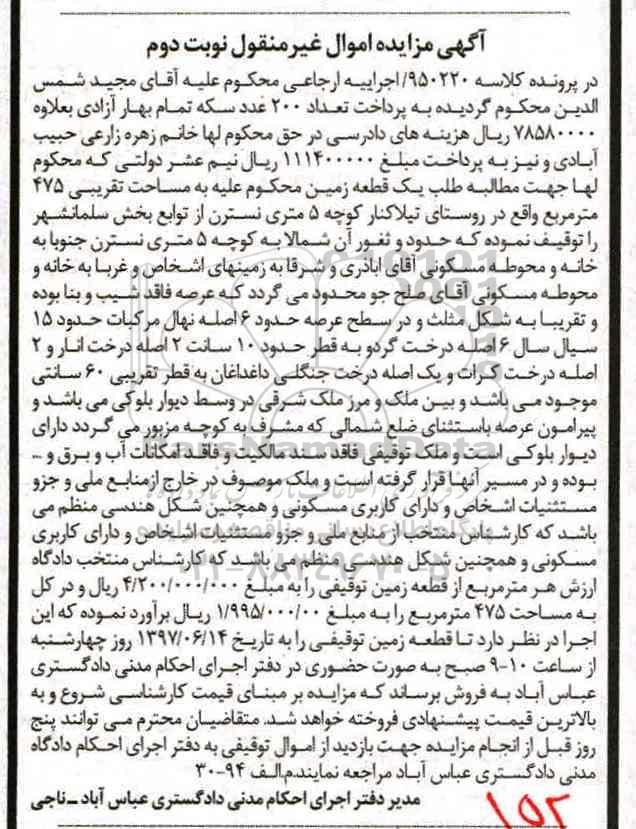 آگهی مزایده اموال غیرمنقول نوبت دوم
در پرونده کلاسه ۹۵۰۲۲۰/اجراییه ارجاعی محکوم علیه آقای مجید شمس
الدین محکوم گردیده به پرداخت تعداد ۲۰۰ عدد سکه تمام بهار آزادی بعلاوه
۷۸۵۸۰۰۰۰ ریال هزینه های دادرسی در حق محکوم لها خانم زهره زارعی حبیب
آبادی و نیز به پرداخت مبلغ ۱۱۱۴۰۰۰۰۰ ریال نیم عشر دولتی که محکوم
لها جهت مطالبه طلب یک قطعه زمین محکوم علیه به مساحت تقریبی ۴۷۵
مترمربع واقع در روستای تیلاکنار کوچه ۵ متری نسترن از توابع بخش سلمانشهر
را توقیف نموده که حدود و ثغور آن شمالا به کوچه ۵ متری نسترن جنوبا به
خانه و محوطه مسکونی آقای اباذری و شرقا به زمینهای اشخاص و غربا به خانه و
محوطه مسکونی آقای صلح جو محدود می گردد که عرصه فاقد شیب و بنا بوده
و تقریبا به شکل مثلث و در سطح عرصه حدود ۶ اصله نهال مرکبات حدود ۱۵
سیال سال ۶ اصله درخت گردو به قطر حدود ۱۰ سانت ۲ اصله درخت انار و ۲
اصله درخت کرات و یک اصله درخت جنگلی داغداغان به قطر تقریبی ۶۰ سانتی
موجود می باشد و بین ملک و مرز ملک شرقی در وسط دیوار بلوکی می باشد و
پیرامون عرصه باستثنای ضلع شمالی که مشرف به کوچه مزبور می گردد دارای
دیوار بلوکی است و ملک توقیفی فاقد سند مالکیت و فاقد امکانات آب و برق و ...
بوده و در مسیر آنها قرار گرفته است و ملک موصوف در خارج ازمنابع ملی و جزو
مستثنیات اشخاص و دارای کاربری مسکونی و همچنین شکل هندسی منظم می
باشد که کارشناس منتخب از منابع ملی و جزو مستثنیات اشخاص و دارای کاربری
مسکونی و همچنین شکل هندسی منظم می باشد که کارشناس منتخب دادگاه
ارزش هر مترمربع از قطعه زمین توقیفی را به مبلغ ۴/۲۰۰/۰۰۰/۰۰۰ ریال و در کل
به مساحت ۴۷۵ مترمربع را به مبلغ ۱/۹۹۵/۰۰۰/۰۰ ریال برآورد نموده که این
اجرا در نظر دارد تا قطعه زمین توقیفی را به تاریخ ۱۳۹۷/۰۶/۱۴ روز چهارشنبه
از ساعت ۱۰-۹ صبح به صورت حضوری در دفتر اجرای احکام مدنی دادگستری
عباس آباد به فروش برساند که مزایده بر مبنای قیمت کارشناسی شروع و به
بالاترین قیمت پیشنهادی فروخته خواهد شد. متقاضیان محترم می توانند پنج
روز قبل از انجام مزایده جهت بازدید از اموال توقیفی به دفتر اجرای احکام دادگاه
مدنی دادگستری عباس آباد مراجعه نمایند.م.الف ۹۴-۳۰
مدیر دفتر اجرای احکام مدنی دادگستری عباس آباد - ناجی
۱۵۲
ParsNamadData
۰۲۱-۸۸۳۴۹۶۷۰-۵